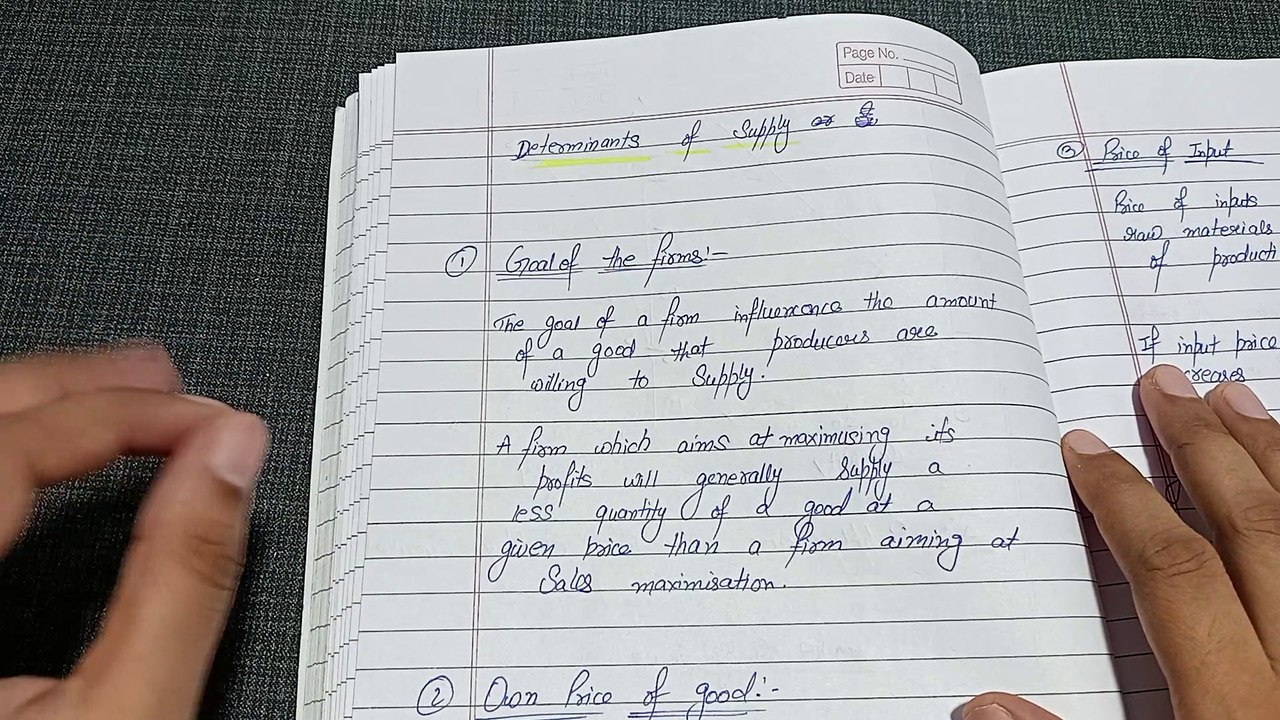 Page No.
Date
Determinants of Supply or
① Goal of the firms:-
The goal of a firm influencence the amount
of a good that producers are
willing to Supply.
A firm which aims at maximusing its
profits will generally Supply a
less quantity of a good at a
given price than a firm aiming at
Sales maximisation.
② Own Price of good:-
③ Price of Input
Price of inputs
raw materials
of producti
If input price
creases